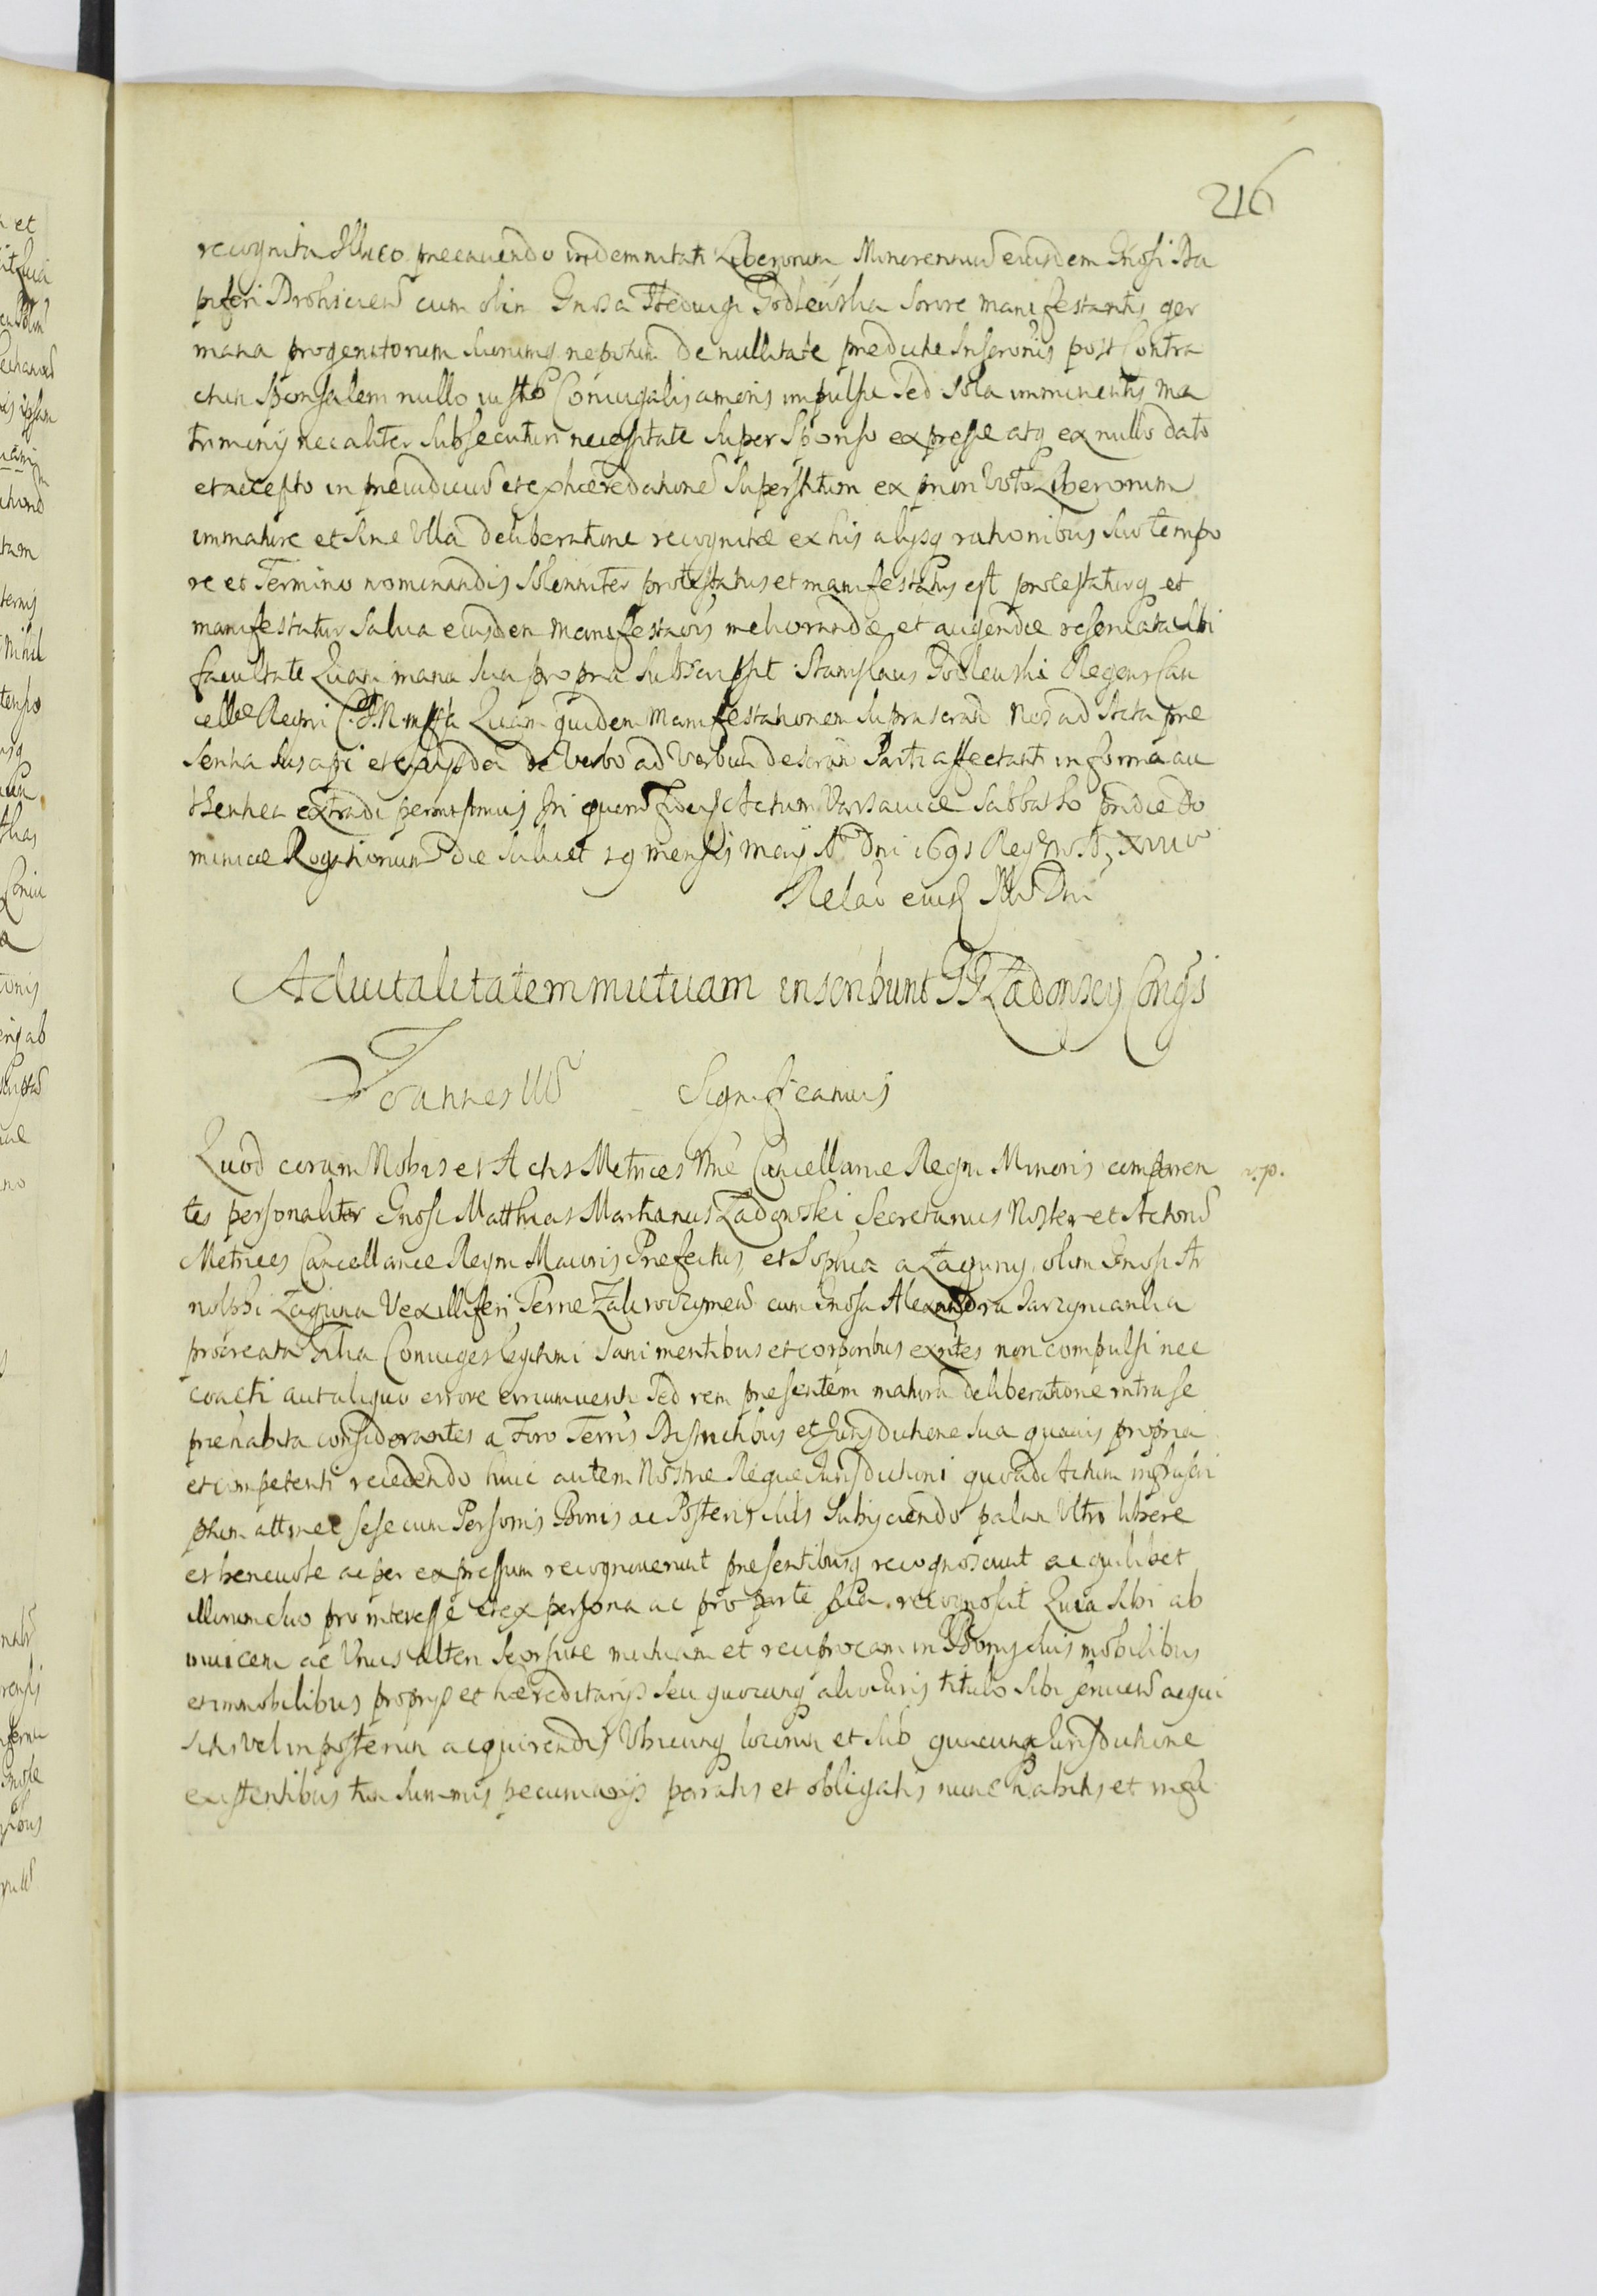 216
recognita Illico precauendo indemnitati Liberorum Minorennium eiusdem Gnosi Da
piferi Drohicien cum olim Gnosa Heduigi Godlewska sorore manifestantis ger
mana progenitorum suorumq nepotum de nullitate predictae Inscronis post Contra
ctum Sponsalem nullo iusto Coniugalis amoris impulsu sed sola imminentis Ma
trimonij nec aliter subsecuturi necessitate super Sponso expresse atq ex nullo dato
et accepto in preiudicium et exhaeredationem superstitum ex priori Voto Liberorum
immature et sine Ulla deliberatione recognitae ex his alijsq rationibus suo tempo
re et Termino nominandis Solenniter protestatus et manifestatus est protestaturq et
manifestatur salua eiusdem manifestaois meliorandae et augendae reseruata sibi
facultate Quam manu sua propria subscripsit Stanislaus Godlewski Regens Can
cellae Regni Quam quidem Manifestationem suprascriptam Nos ad Acta prae
sentia suscipi et de Verbo ad Verbum describi Parti affectanti in forma au
thentica extradi permisimus In quorum fidem Actum Varsauiae Sabbatho pridie Do
minicae Rogationum die scilicet 19 mensis Maij Ao Dni 1691 Regn
Relao eiusd Illu Dni
Aduitalitatem mutuam inscribunt GG Zadonscy Congs
Joannes III Significamus
Quod coram Nobis et Actis Metrices Nrae Cancellariae Regni Minoris comparen n.p.
tes personaliter Gnosi Matthias Martianus Zadonski Secretarius Noster et Actorum
Metrices Cancellariae Regni Maioris Prefectus, et Sophia a Zaguny, olim Gnosi Ar
nolphi Zaguna Vexilliferi Terrae Zakroczymen cum Gnosa Alexandra Jarzynianka
procreata filia Coniuges legitimi sani mentibus et corporibus exntes non compulsi nec
coacti aut aliquo errore circumuenti sed rem presentem matura deliberatione intra se
prehabita considerantes a Foro Terris Districtibus et Jurisdictione sua quauis propria
et competenti recedendo huic autem Nostrae Regiae Jurisdictioni quoad Actum infrascri
ptum attinet sese cum Personis Bonis ac Posteris suis Subijciendo palam Ultro libere
et beneuole ac per expressum recognouerunt presentibusq recognoscunt ac quilibet
illorum suo pro interesse et ex persona ac pro parte sua recognoscit Quia sibi ab
inuicem ac Unus alteri seorsiue mutuam et reciprocam in Bonis suis mobilibus
et immobilibus proprijs et haereditarijs seu quocunq alio Juris titulo sibi seruien acqui
sitis vel in posterum acquirendis Ubicunq locorum et sub quacunq Jurisdictione
existentibus tum summis pecuniarijs paratis et obligatis nunc habitis et in